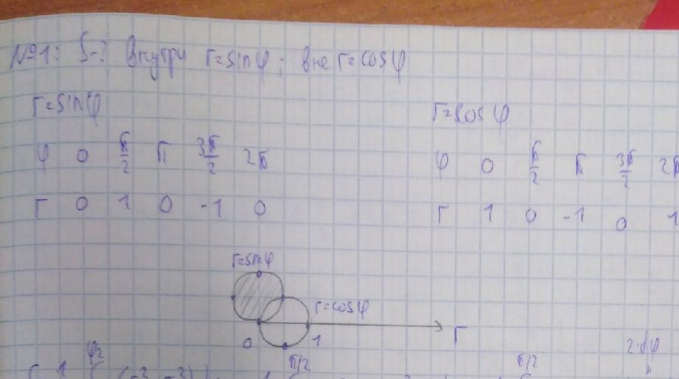 №1: S-? внутри r=sinφ; вне r=cosφ
r=sinφ
φ 0 π/2 π 3π/2 2π
r 0 1 0 -1 0
r=cosφ
φ 0 π/2 π 3π/2 2π
r 1 0 -1 0 1
r=sinφ
r=cosφ
0 1 r
π/2
φ2
π/2
2·dφ